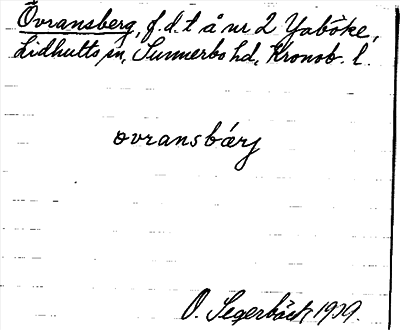 Övransberg, f.d.t å nr 2 Yaböke,
Lidhults sn, Sunnerbo hd, Kronob. l.
ovransbárj
O. Segerbäck 1919.